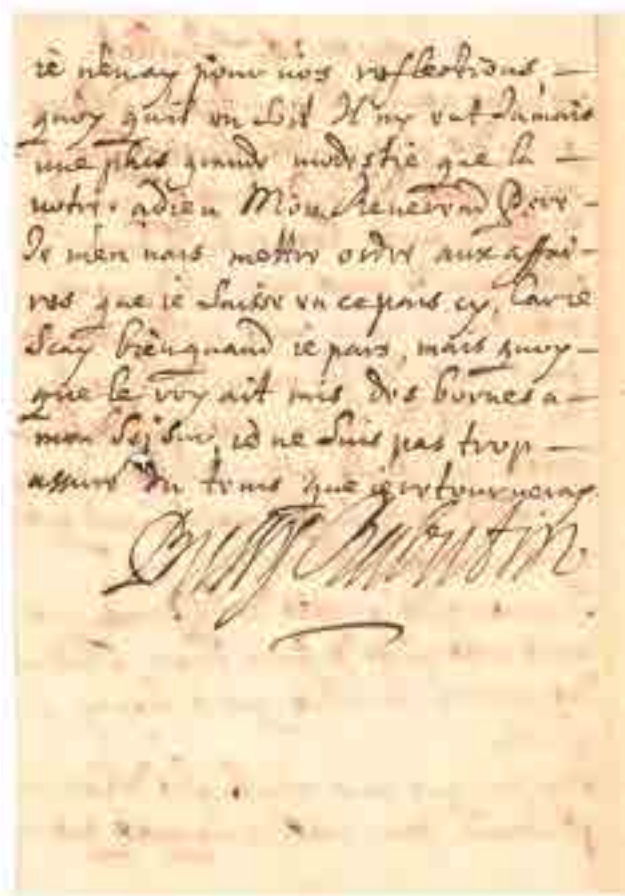 ie n'en ay pour vos reflections,
quoy qu'il en soit Il n'y eut Jamais
une plus grande modestie que la
votre. adieu Mon Reverend Pere
Je m'en vais mettre ordre aux affai-
res que ie laisse en ce pais cy, Car ie
scay bien quand ie pars, mais quoy
que le roy ait mis des bornes a
mon sejour, ie ne suis pas trop
assuré du tems que ie retourneray.
Bussy Rabutin